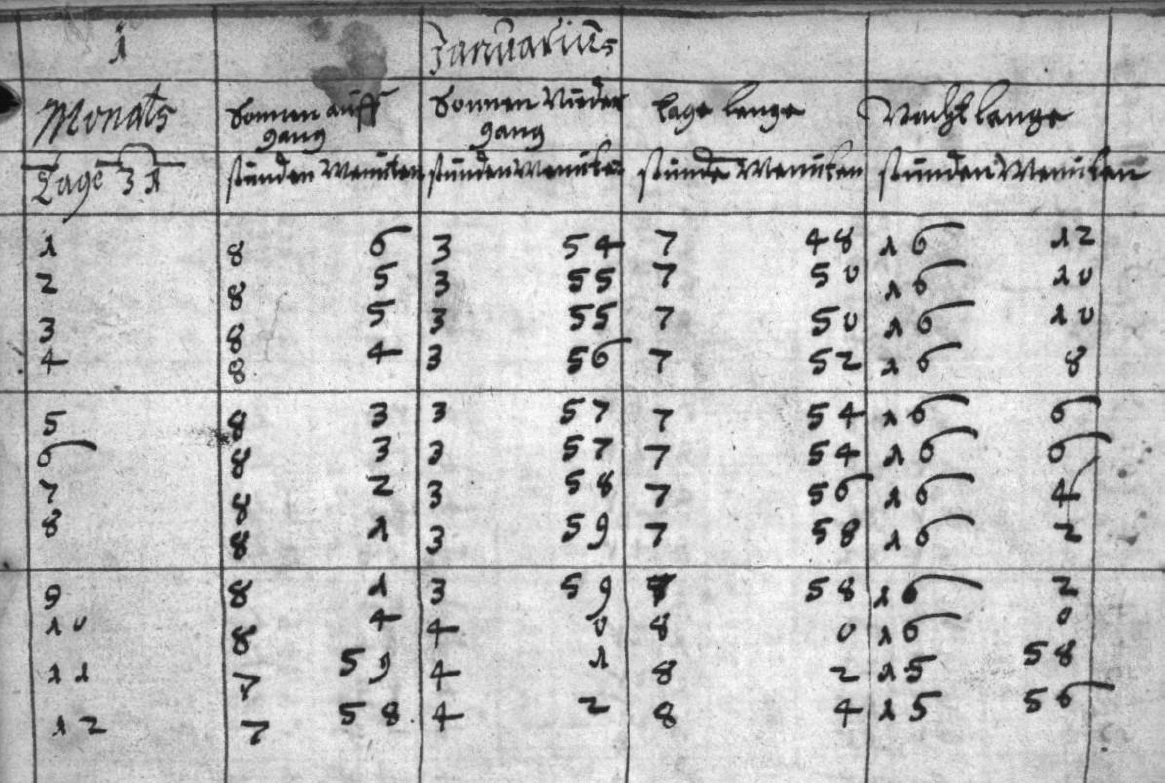 1 Januarius
Monats Sonnen auff Sonnen Nieder tage lenge Nacht lenge
gang gang
Tage 31 stunden Menuten stunden Menuten stunde Menuten stunden Menuten
1 8 6 3 54 7 48 16 12
2 8 5 3 55 7 50 16 10
3 8 5 3 55 7 50 16 10
4 8 4 3 56 7 52 16 8
5 8 3 3 57 7 54 16 6
6 8 3 3 57 7 54 16 6
7 8 2 3 58 7 56 16 4
8 8 1 3 59 7 58 16 2
9 8 1 3 59 7 58 16 2
10 8 4 4 0 8 0 16 0
11 7 59 4 1 8 2 15 58
12 7 58 4 2 8 4 15 56